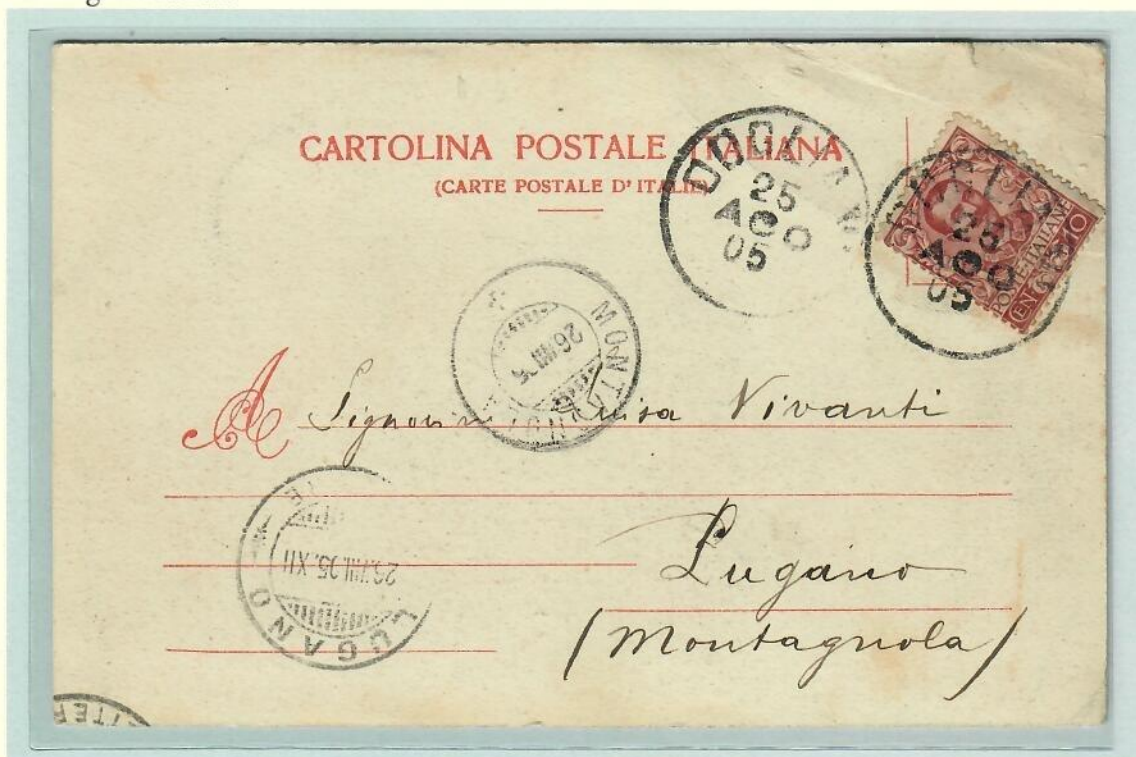 CARTOLINA POSTALE ITALIANA
(CARTE POSTALE D'ITALIE)
DOGLIAN
25
AGO
05
25
AGO
05
POSTE ITALIANE
MONTAGNOLA
26 VIII
A Signorina Luisa Vivanti
LUGANO
26.VIII.05.XII
Lugano
(Montagnola)